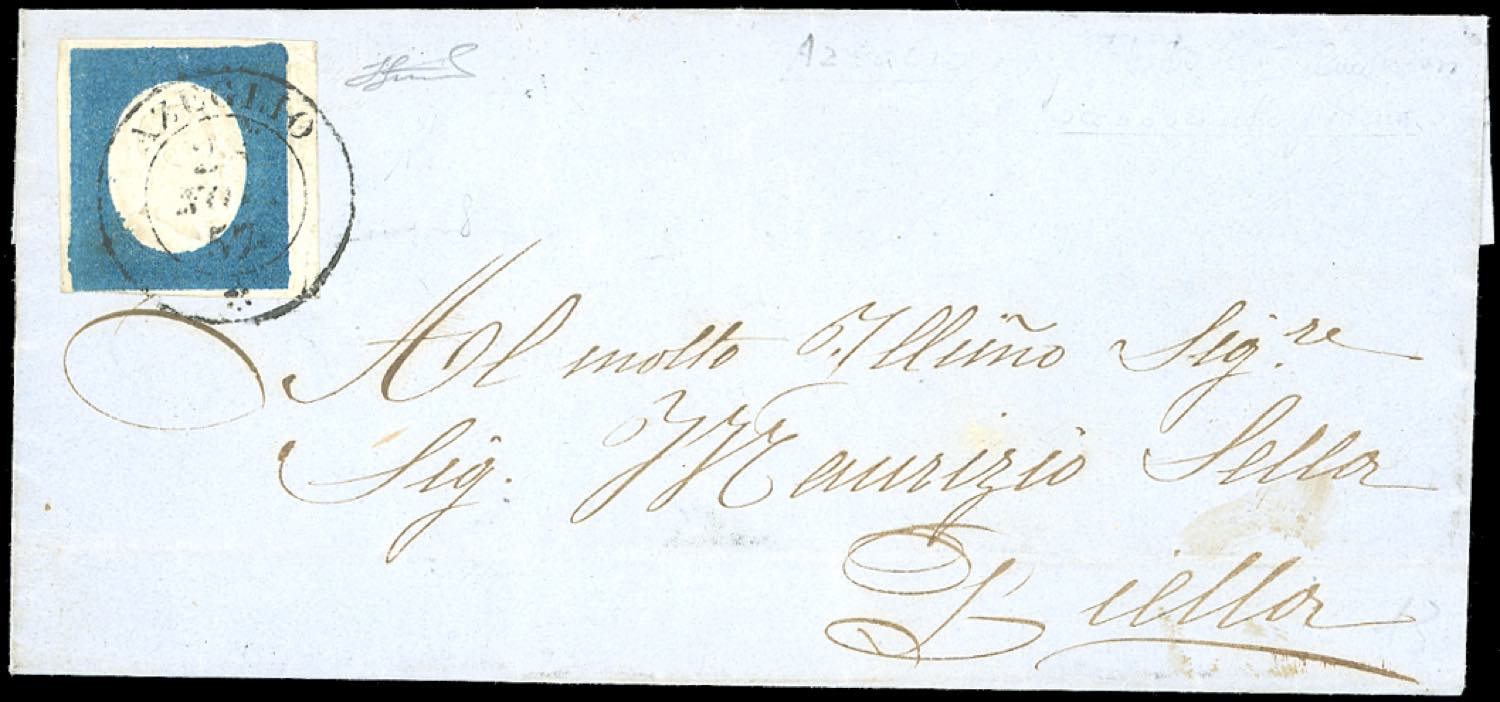 AZEGLIO
57
Al molto Illmo Sig.re
Sig. Maurizio Sella
Biella